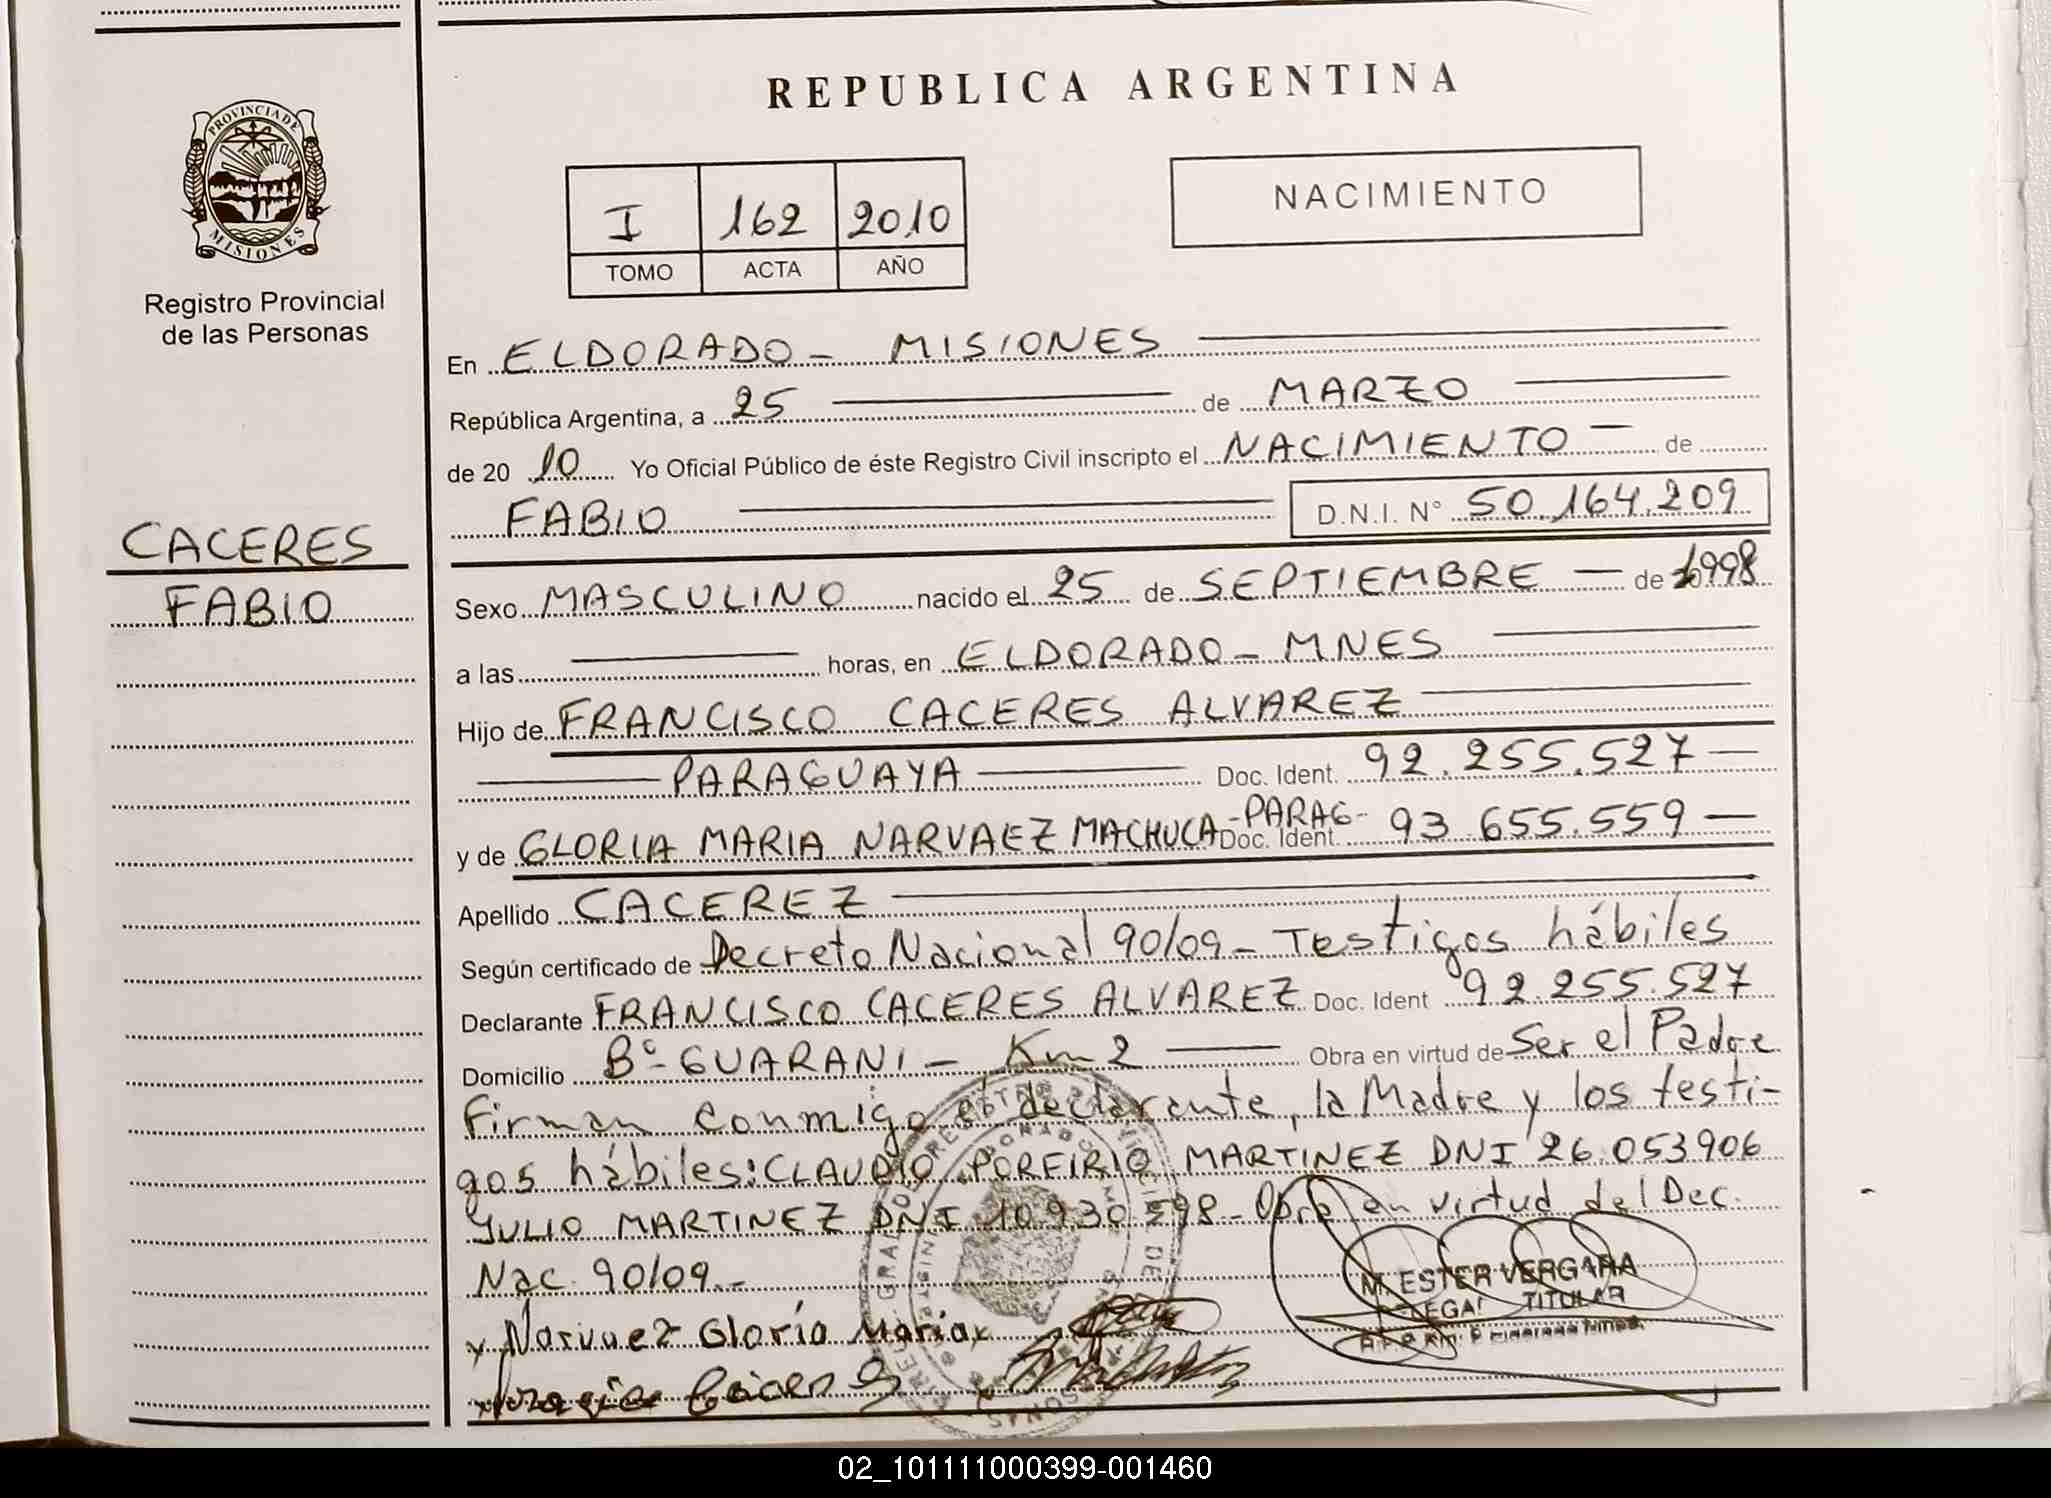 REPUBLICA ARGENTINA
PROVINCIA DE
MISIONES
Registro Provincial
de las Personas
I 162 2010
TOMO ACTA AÑO
NACIMIENTO
CACERES
FABIO
En ELDORADO - MISIONES
República Argentina, a 25 de MARZO
de 20 10 Yo Oficial Público de éste Registro Civil inscripto el NACIMIENTO de
FABIO D.N.I. N° 50.164.209
Sexo MASCULINO nacido el 25 de SEPTIEMBRE de 1998
a las horas, en ELDORADO - MNES
Hijo de FRANCISCO CACERES ALVAREZ
PARAGUAYA Doc. Ident. 92.255.527
y de GLORIA MARIA NARVAEZ MACHUCA - PARAG - Doc. Ident. 93 655.559
Apellido CACEREZ
Según certificado de Decreto Nacional 90/09 - Testigos hábiles
Declarante FRANCISCO CACERES ALVAREZ Doc. Ident 92.255.527
Domicilio B° - GUARANI - Km 2 Obra en virtud de Ser el Padre
Firman conmigo el declarante, la Madre y los testi-
gos hábiles: CLAUDIO PORFIRIO MARTINEZ DNI 26.053906
JULIO MARTINEZ DNI 10.930. - Obra en virtud del Dec.
Nac. 90/09. -
M. ESTER VERGARA
TITULAR
x Narvaez Gloria Maria x
02_101111000399-001460